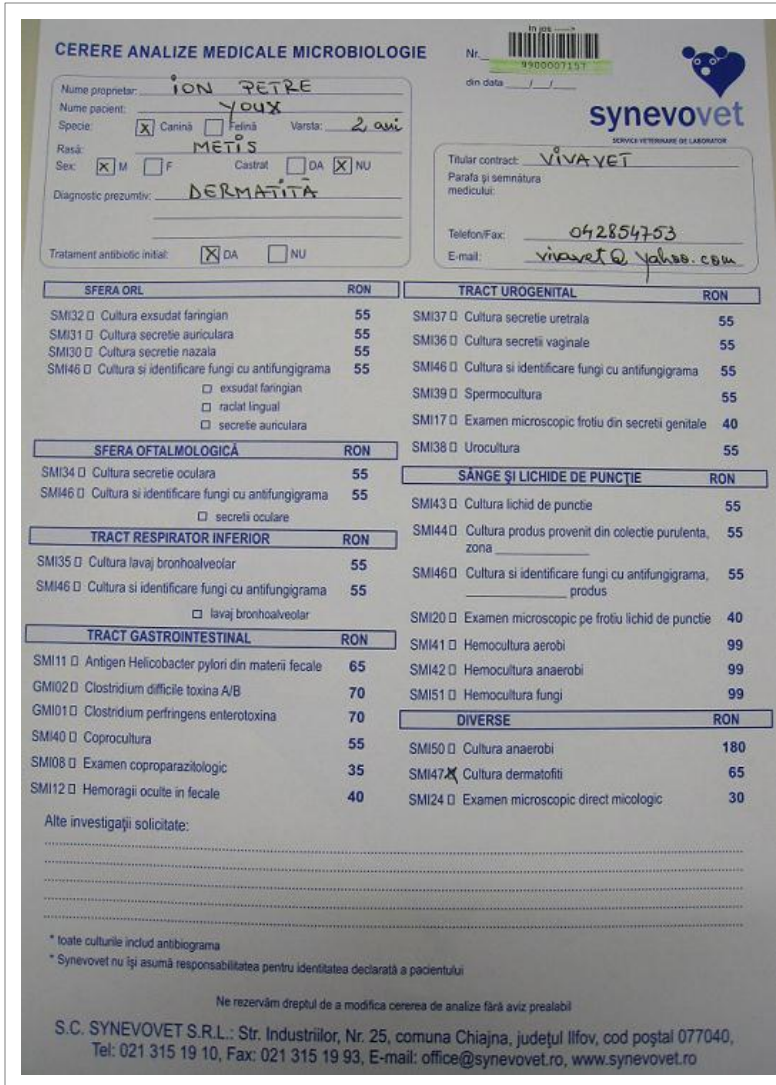 in jos ---->
CERERE ANALIZE MEDICALE MICROBIOLOGIE
Nr.
9900007157
din data __/__/__
synevovet
SERVICII VETERINARE DE LABORATOR
Nume proprietar: ION PETRE
Nume pacient: YOUX
Specie: X Canină Felină Varsta: 2 ani
Rasă: METIS
Sex: X M F Castrat DA X NU
Diagnostic prezumtiv: DERMATITĂ
Tratament antibiotic initial: X DA NU
Titular contract: VIVAVET
Parafa și semnătura
medicului:
Telefon/Fax: 042854753
E-mail: vivavet@yahoo.com
SFERA ORL RON
SMI32 Cultura exsudat faringian 55
SMI31 Cultura secretie auriculara 55
SMI30 Cultura secretie nazala 55
SMI46 Cultura si identificare fungi cu antifungigrama 55
exsudat faringian
raclat lingual
secretie auriculara
SFERA OFTALMOLOGICĂ RON
SMI34 Cultura secretie oculara 55
SMI46 Cultura si identificare fungi cu antifungigrama 55
secretii oculare
TRACT RESPIRATOR INFERIOR RON
SMI35 Cultura lavaj bronhoalveolar 55
SMI46 Cultura si identificare fungi cu antifungigrama 55
lavaj bronhoalveolar
TRACT GASTROINTESTINAL RON
SMI11 Antigen Helicobacter pylori din materii fecale 65
GMI02 Clostridium difficile toxina A/B 70
GMI01 Clostridium perfringens enterotoxina 70
SMI40 Coprocultura 55
SMI08 Examen coproparazitologic 35
SMI12 Hemoragii oculte in fecale 40
TRACT UROGENITAL RON
SMI37 Cultura secretie uretrala 55
SMI36 Cultura secretii vaginale 55
SMI46 Cultura si identificare fungi cu antifungigrama 55
SMI39 Spermocultura 55
SMI17 Examen microscopic frotiu din secretii genitale 40
SMI38 Urocultura 55
SÂNGE ȘI LICHIDE DE PUNCȚIE RON
SMI43 Cultura lichid de punctie 55
SMI44 Cultura produs provenit din colectie purulenta, 55
zona
SMI46 Cultura si identificare fungi cu antifungigrama, 55
produs
SMI20 Examen microscopic pe frotiu lichid de punctie 40
SMI41 Hemocultura aerobi 99
SMI42 Hemocultura anaerobi 99
SMI51 Hemocultura fungi 99
DIVERSE RON
SMI50 Cultura anaerobi 180
SMI47 X Cultura dermatofiti 65
SMI24 Examen microscopic direct micologic 30
Alte investigații solicitate:
* toate culturile includ antibiograma
* Synevovet nu își asumă responsabilitatea pentru identitatea declarată a pacientului
Ne rezervăm dreptul de a modifica cererea de analize fără aviz prealabil
S.C. SYNEVOVET S.R.L.: Str. Industriilor, Nr. 25, comuna Chiajna, județul Ilfov, cod poștal 077040,
Tel: 021 315 19 10, Fax: 021 315 19 93, E-mail: office@synevovet.ro, www.synevovet.ro